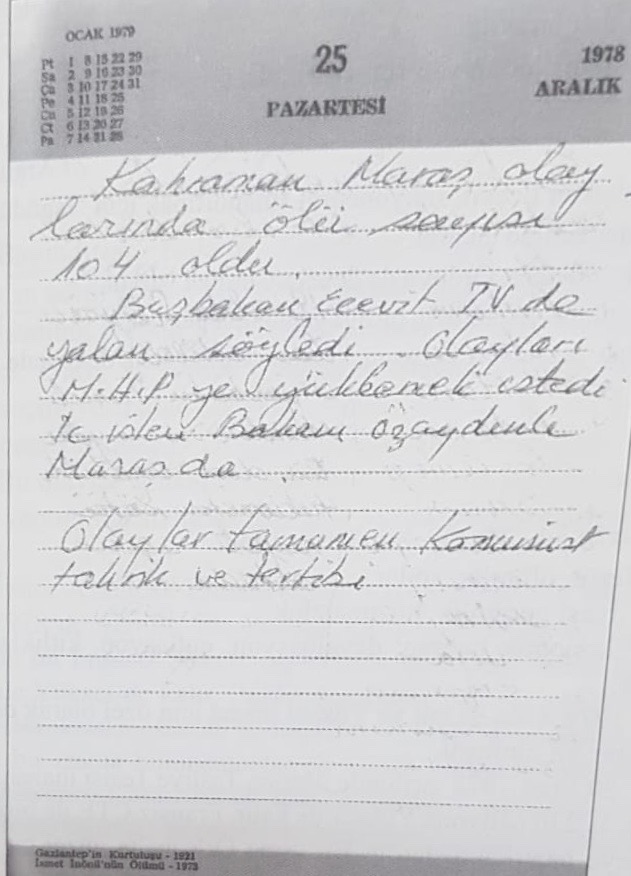 OCAK 1979
Pt 1 8 15 22 29
Sa 2 9 16 23 30
Ça 3 10 17 24 31
Pe 4 11 18 25
Cu 5 12 19 26
Ct 6 13 20 27
Pa 7 14 21 28
25
PAZARTESİ
1978
ARALIK
Kahraman Maraş olay
larında ölü sayısı
104 oldu.
Başbakan Ecevit TV de
yalan söyledi. Olayları
M.H.P ye yüklemek istedi.
İç işleri Bakanı Özaydınlı
Maraşda.
Olaylar tamamen Komünist
tahrik ve tertibi
Gaziantep'in Kurtuluşu - 1921
İsmet İnönü'nün Ölümü - 1973